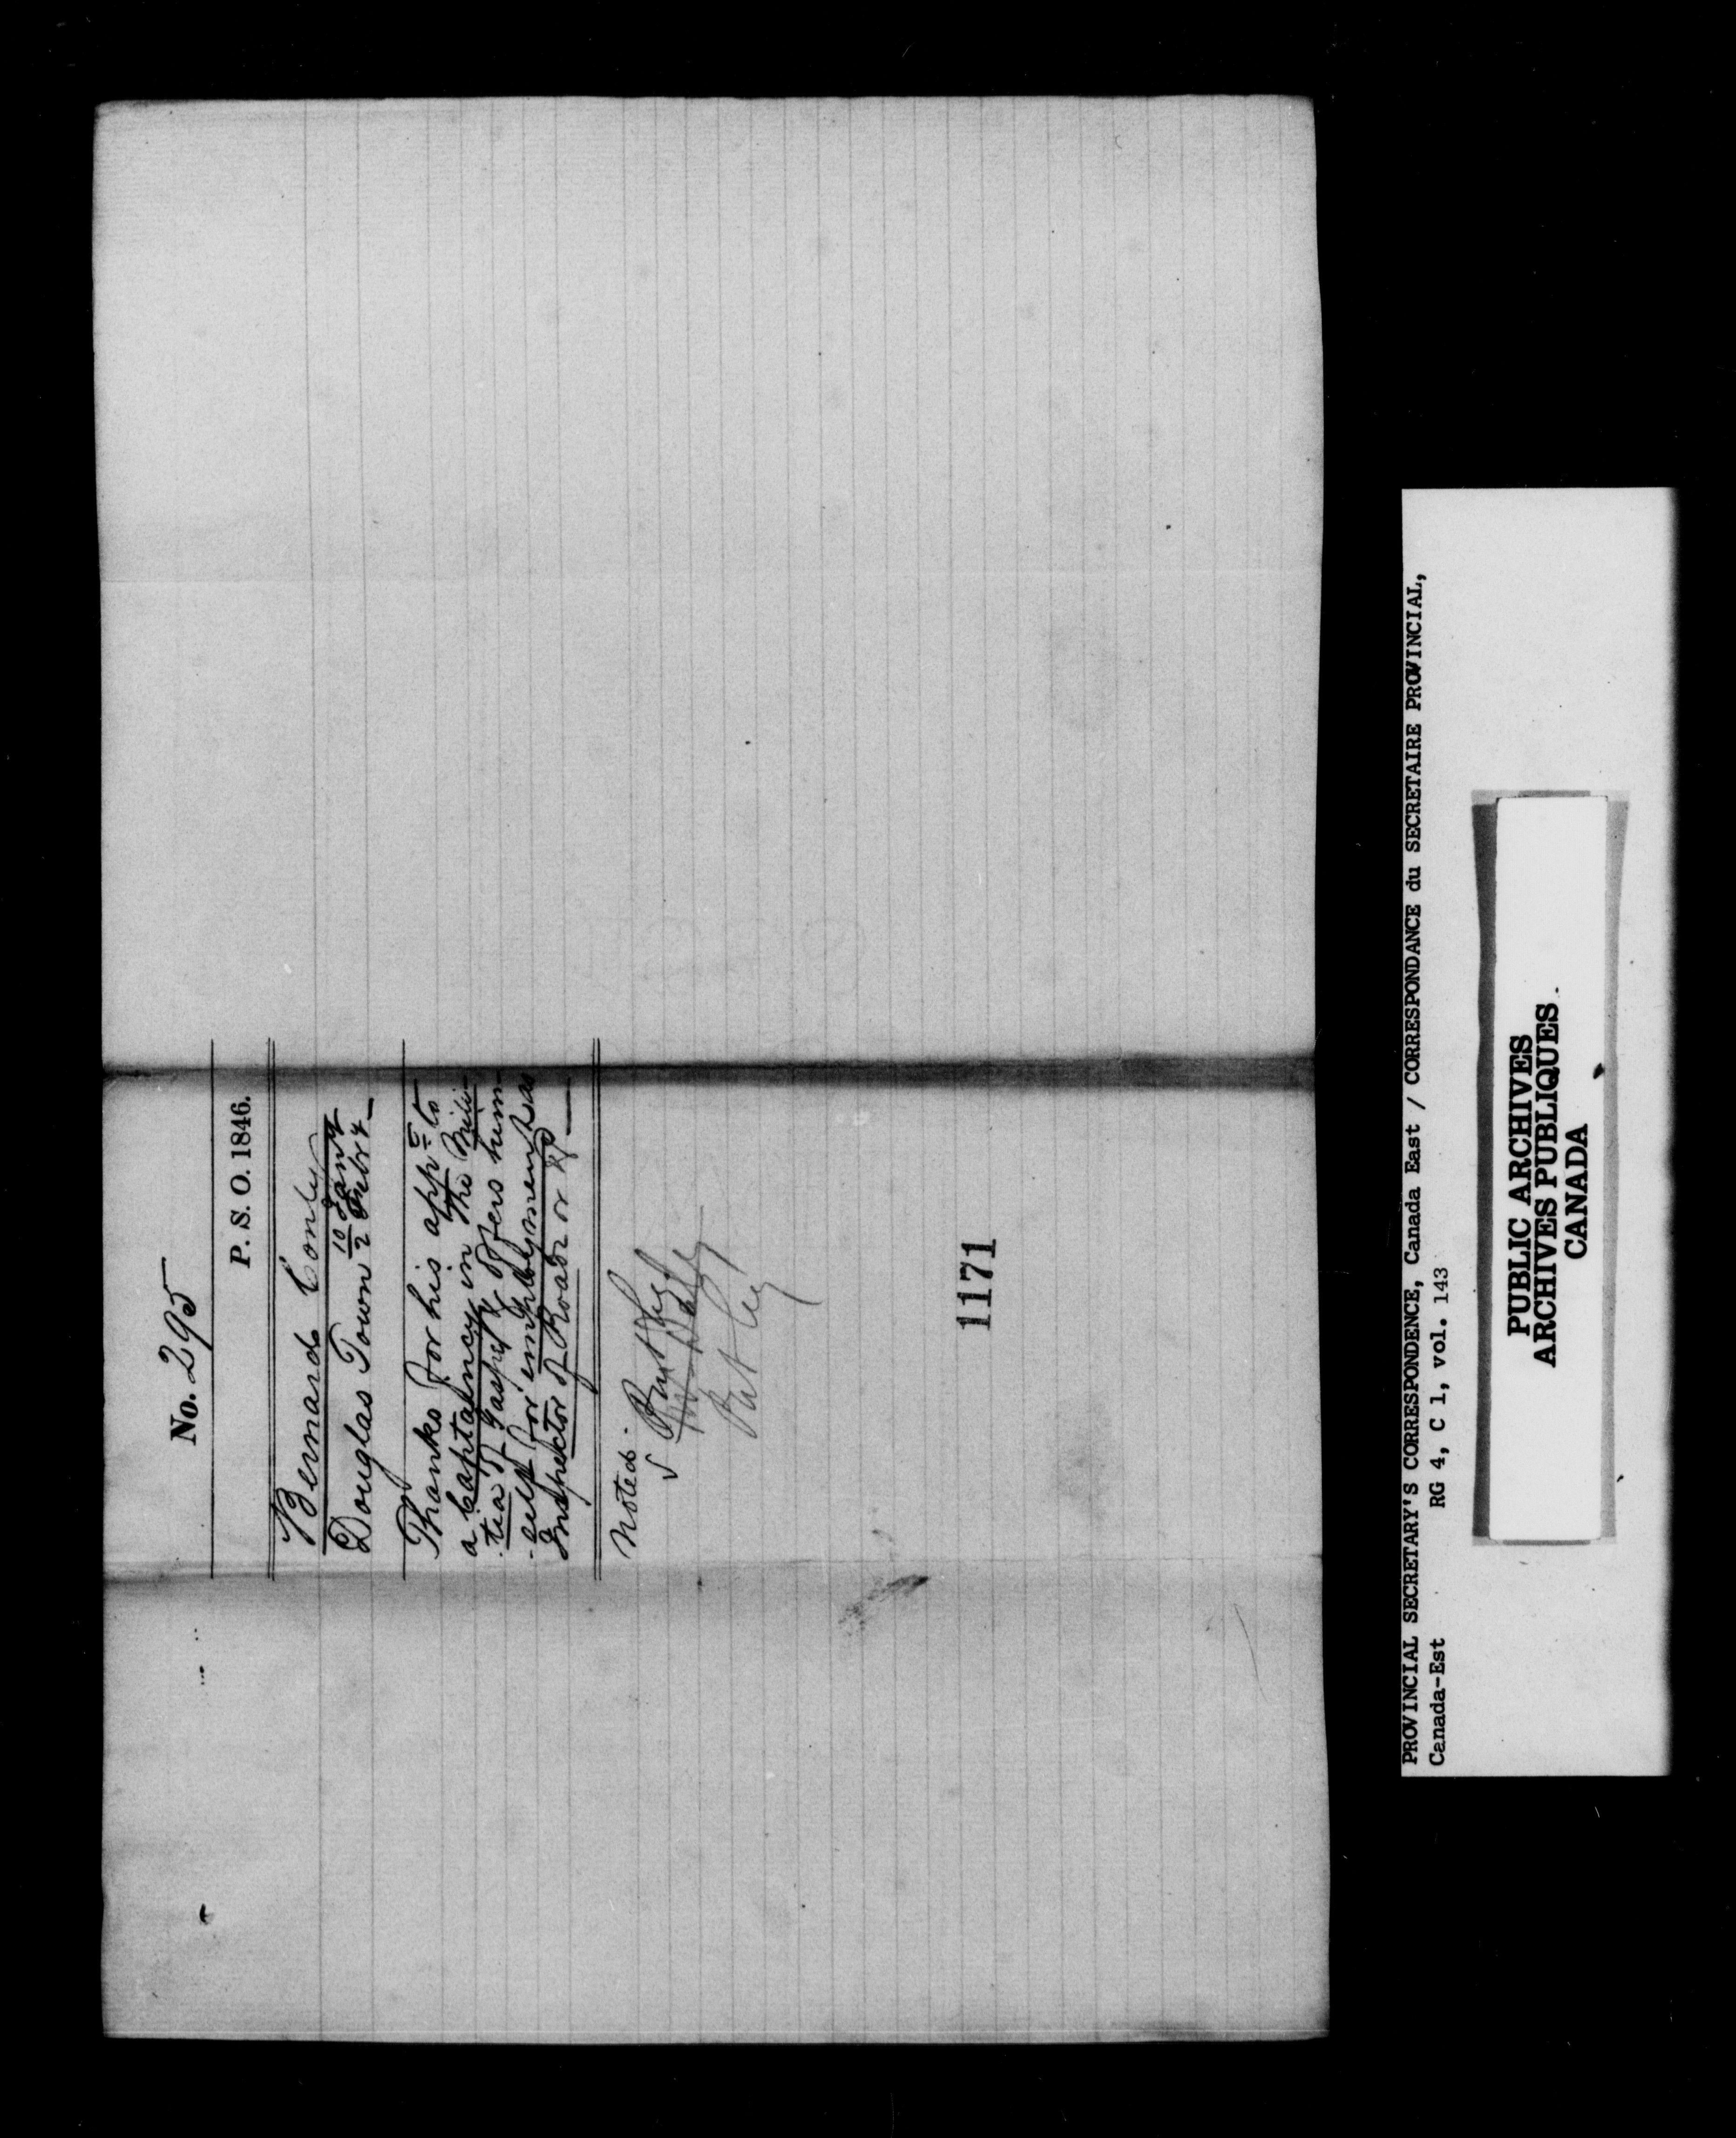 No. 295
P. S. O. 1846.
Bernard Conley
Douglas Town 10 Jany
2 Febry
Thanks for his appt to
a Captaincy in the Mili-
tia of Gaspé & offers him
-self for employment as
Inspector of Roads or
Noted.
1171
PROVINCIAL SECRETARY'S CORRESPONDENCE, Canada East / CORRESPONDANCE du SECRETAIRE PROVINCIAL,
Canada-Est RG 4, C 1, vol. 143
PUBLIC ARCHIVES
ARCHIVES PUBLIQUES
CANADA